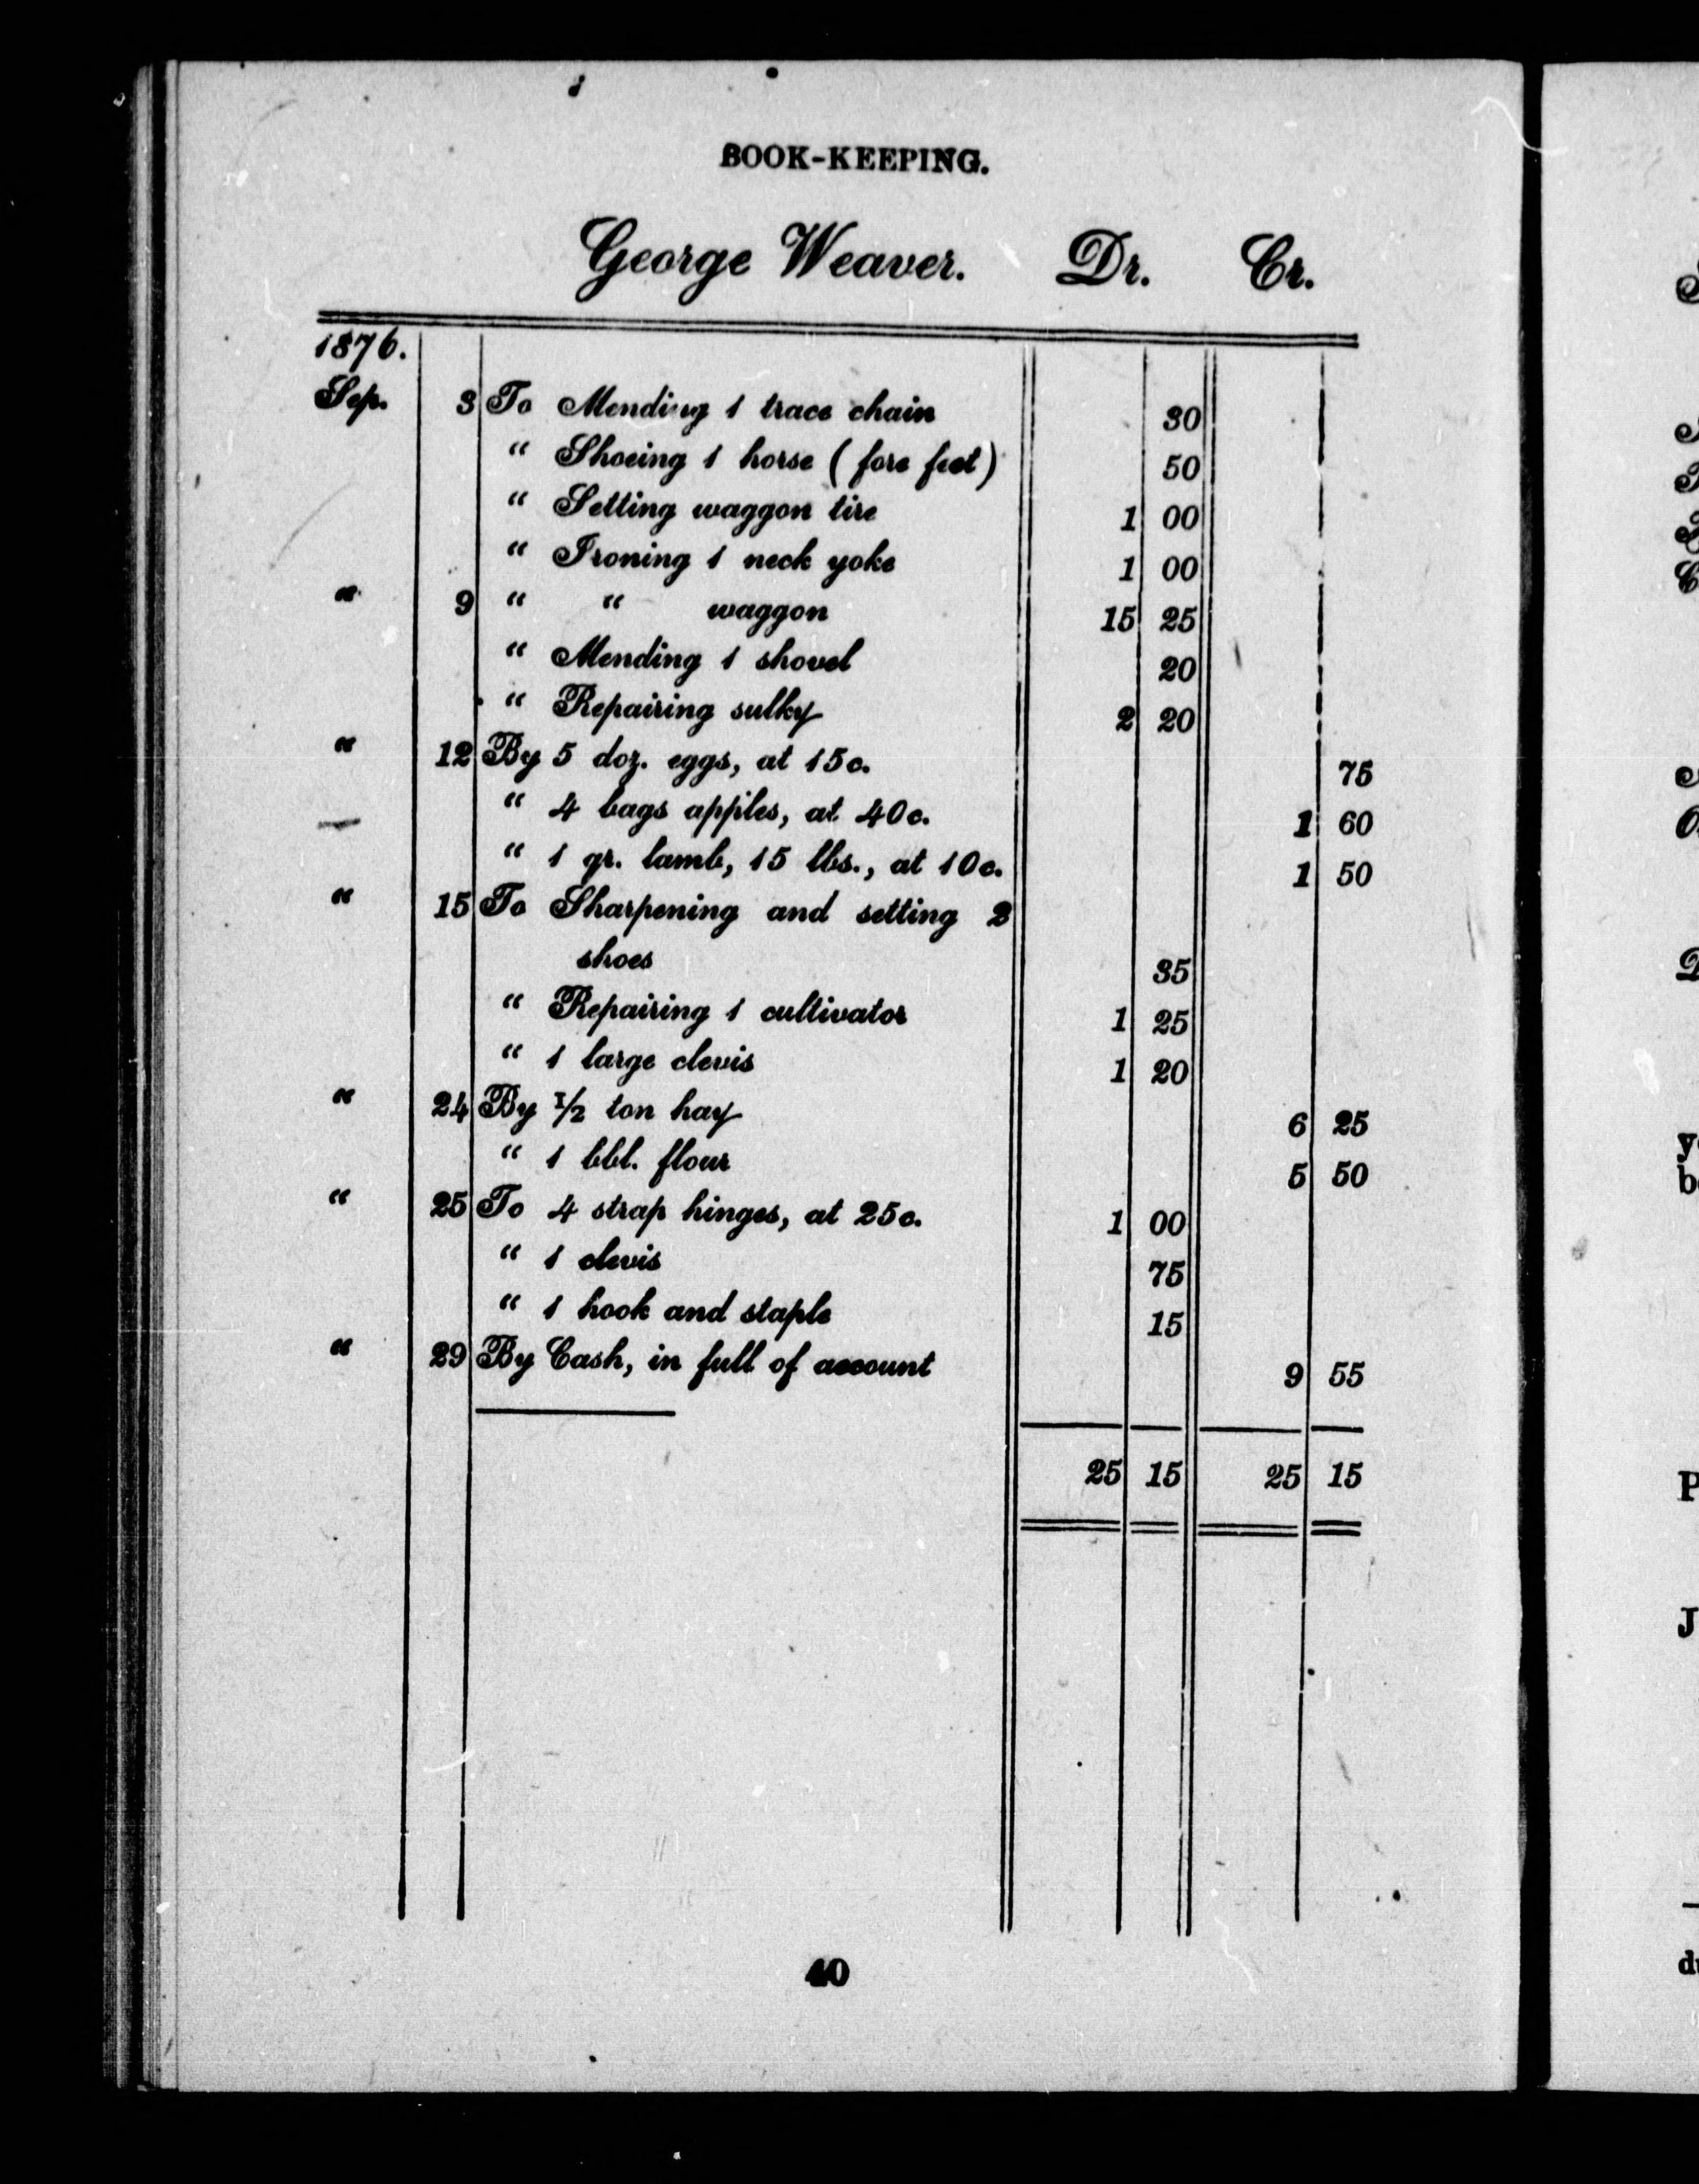 BOOK-KEEPING.
George Weaver. Dr. Cr.
1876.
Sep. 3 To Mending 1 trace chain 30
“ Shoeing 1 horse ( fore feet ) 50
“ Setting waggon tire 1 00
“ Ironing 1 neck yoke 1 00
“ 9 “ “ waggon 15 25
“ Mending 1 shovel 20
“ Repairing sulky 2 20
“ 12 By 5 doz. eggs, at 15c. 75
“ 4 bags apples, at 40c. 1 60
“ 1 qr. lamb, 15 lbs., at 10c. 1 50
“ 15 To Sharpening and setting 2
shoes 35
“ Repairing 1 cultivator 1 25
“ 1 large clevis 1 20
“ 24 By 1/2 ton hay 6 25
“ 1 bbl. flour 5 50
“ 25 To 4 strap hinges, at 25c. 1 00
“ 1 clevis 75
“ 1 hook and staple 15
“ 29 By Cash, in full of account 9 55
25 15 25 15
40